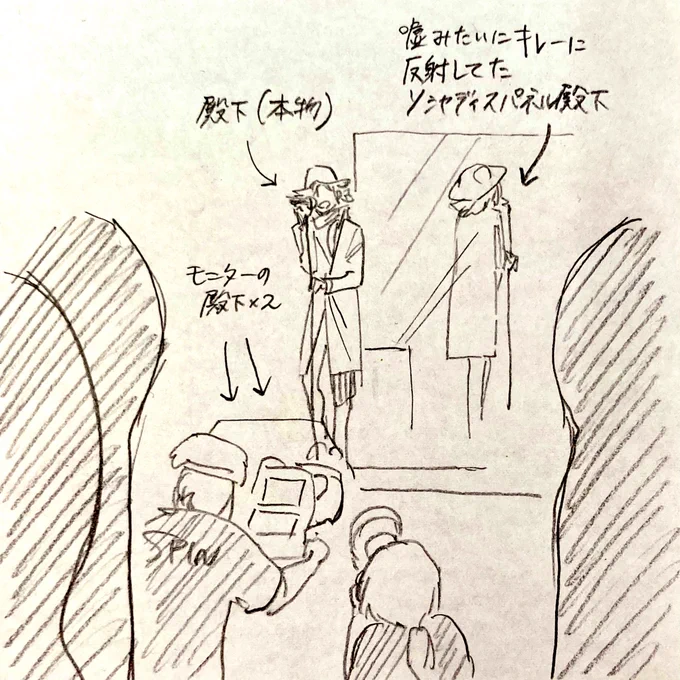 嘘みたいにキレーに
反射してた
ソシャディスパネル殿下
殿下(本物)
モニターの
殿下×2
SPIN